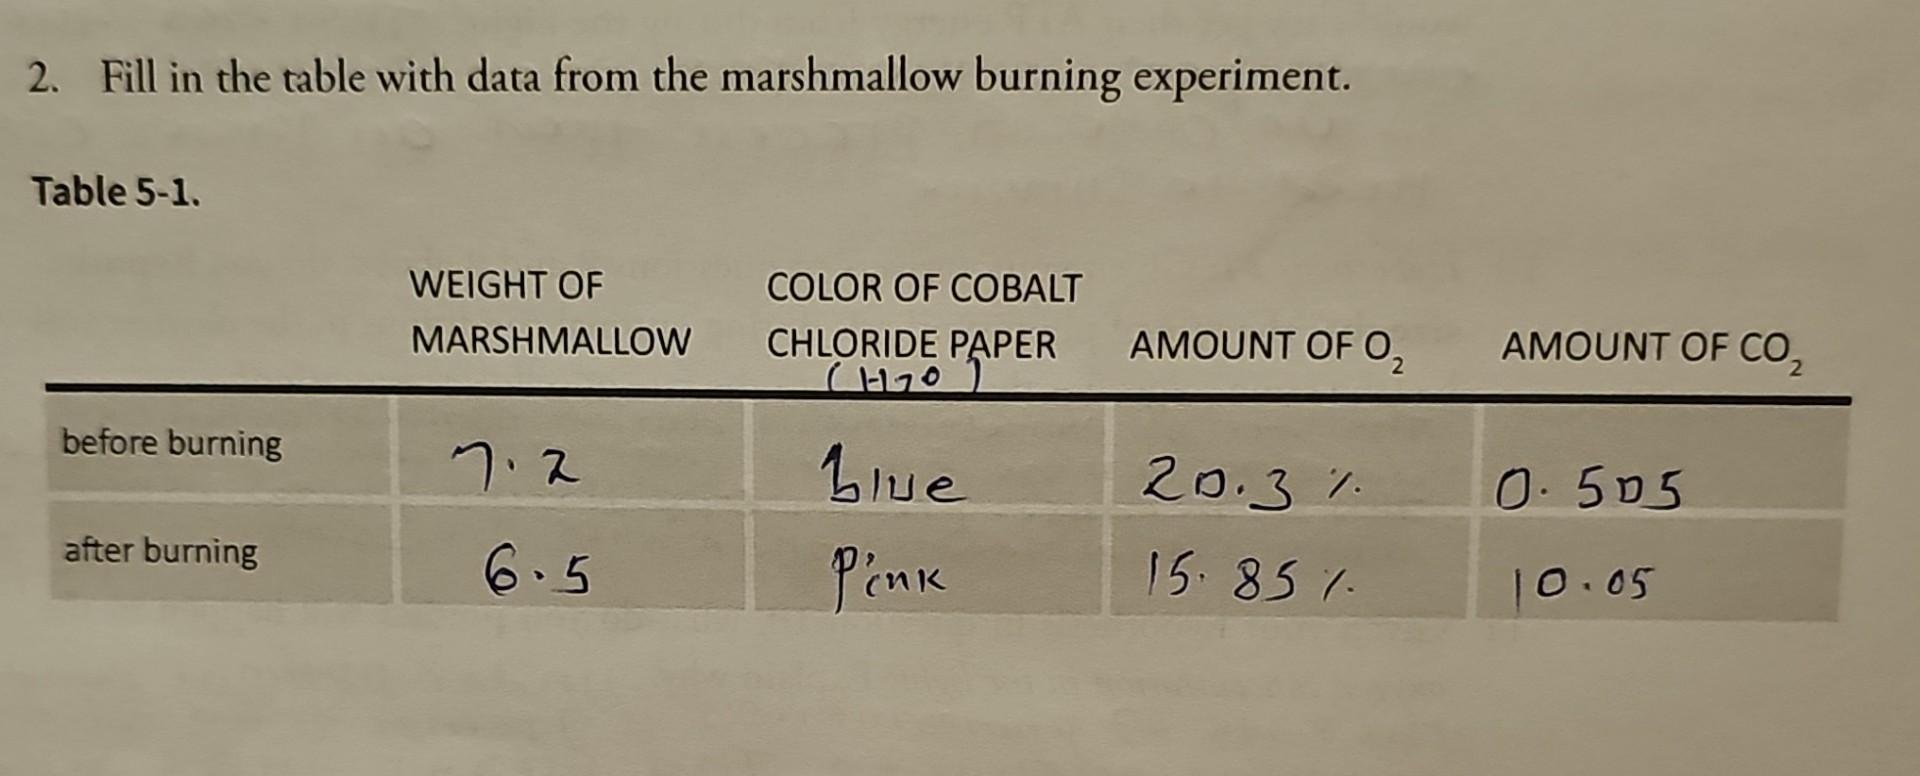 2. Fill in the table with data from the marshmallow burning experiment.
Table 5-1.
WEIGHT OF MARSHMALLOW COLOR OF COBALT CHLORIDE PAPER (H2O) AMOUNT OF O₂ AMOUNT OF CO₂
before burning 7.2 blue 20.3 % 0.505
after burning 6.5 Pink 15.85 % 10.05